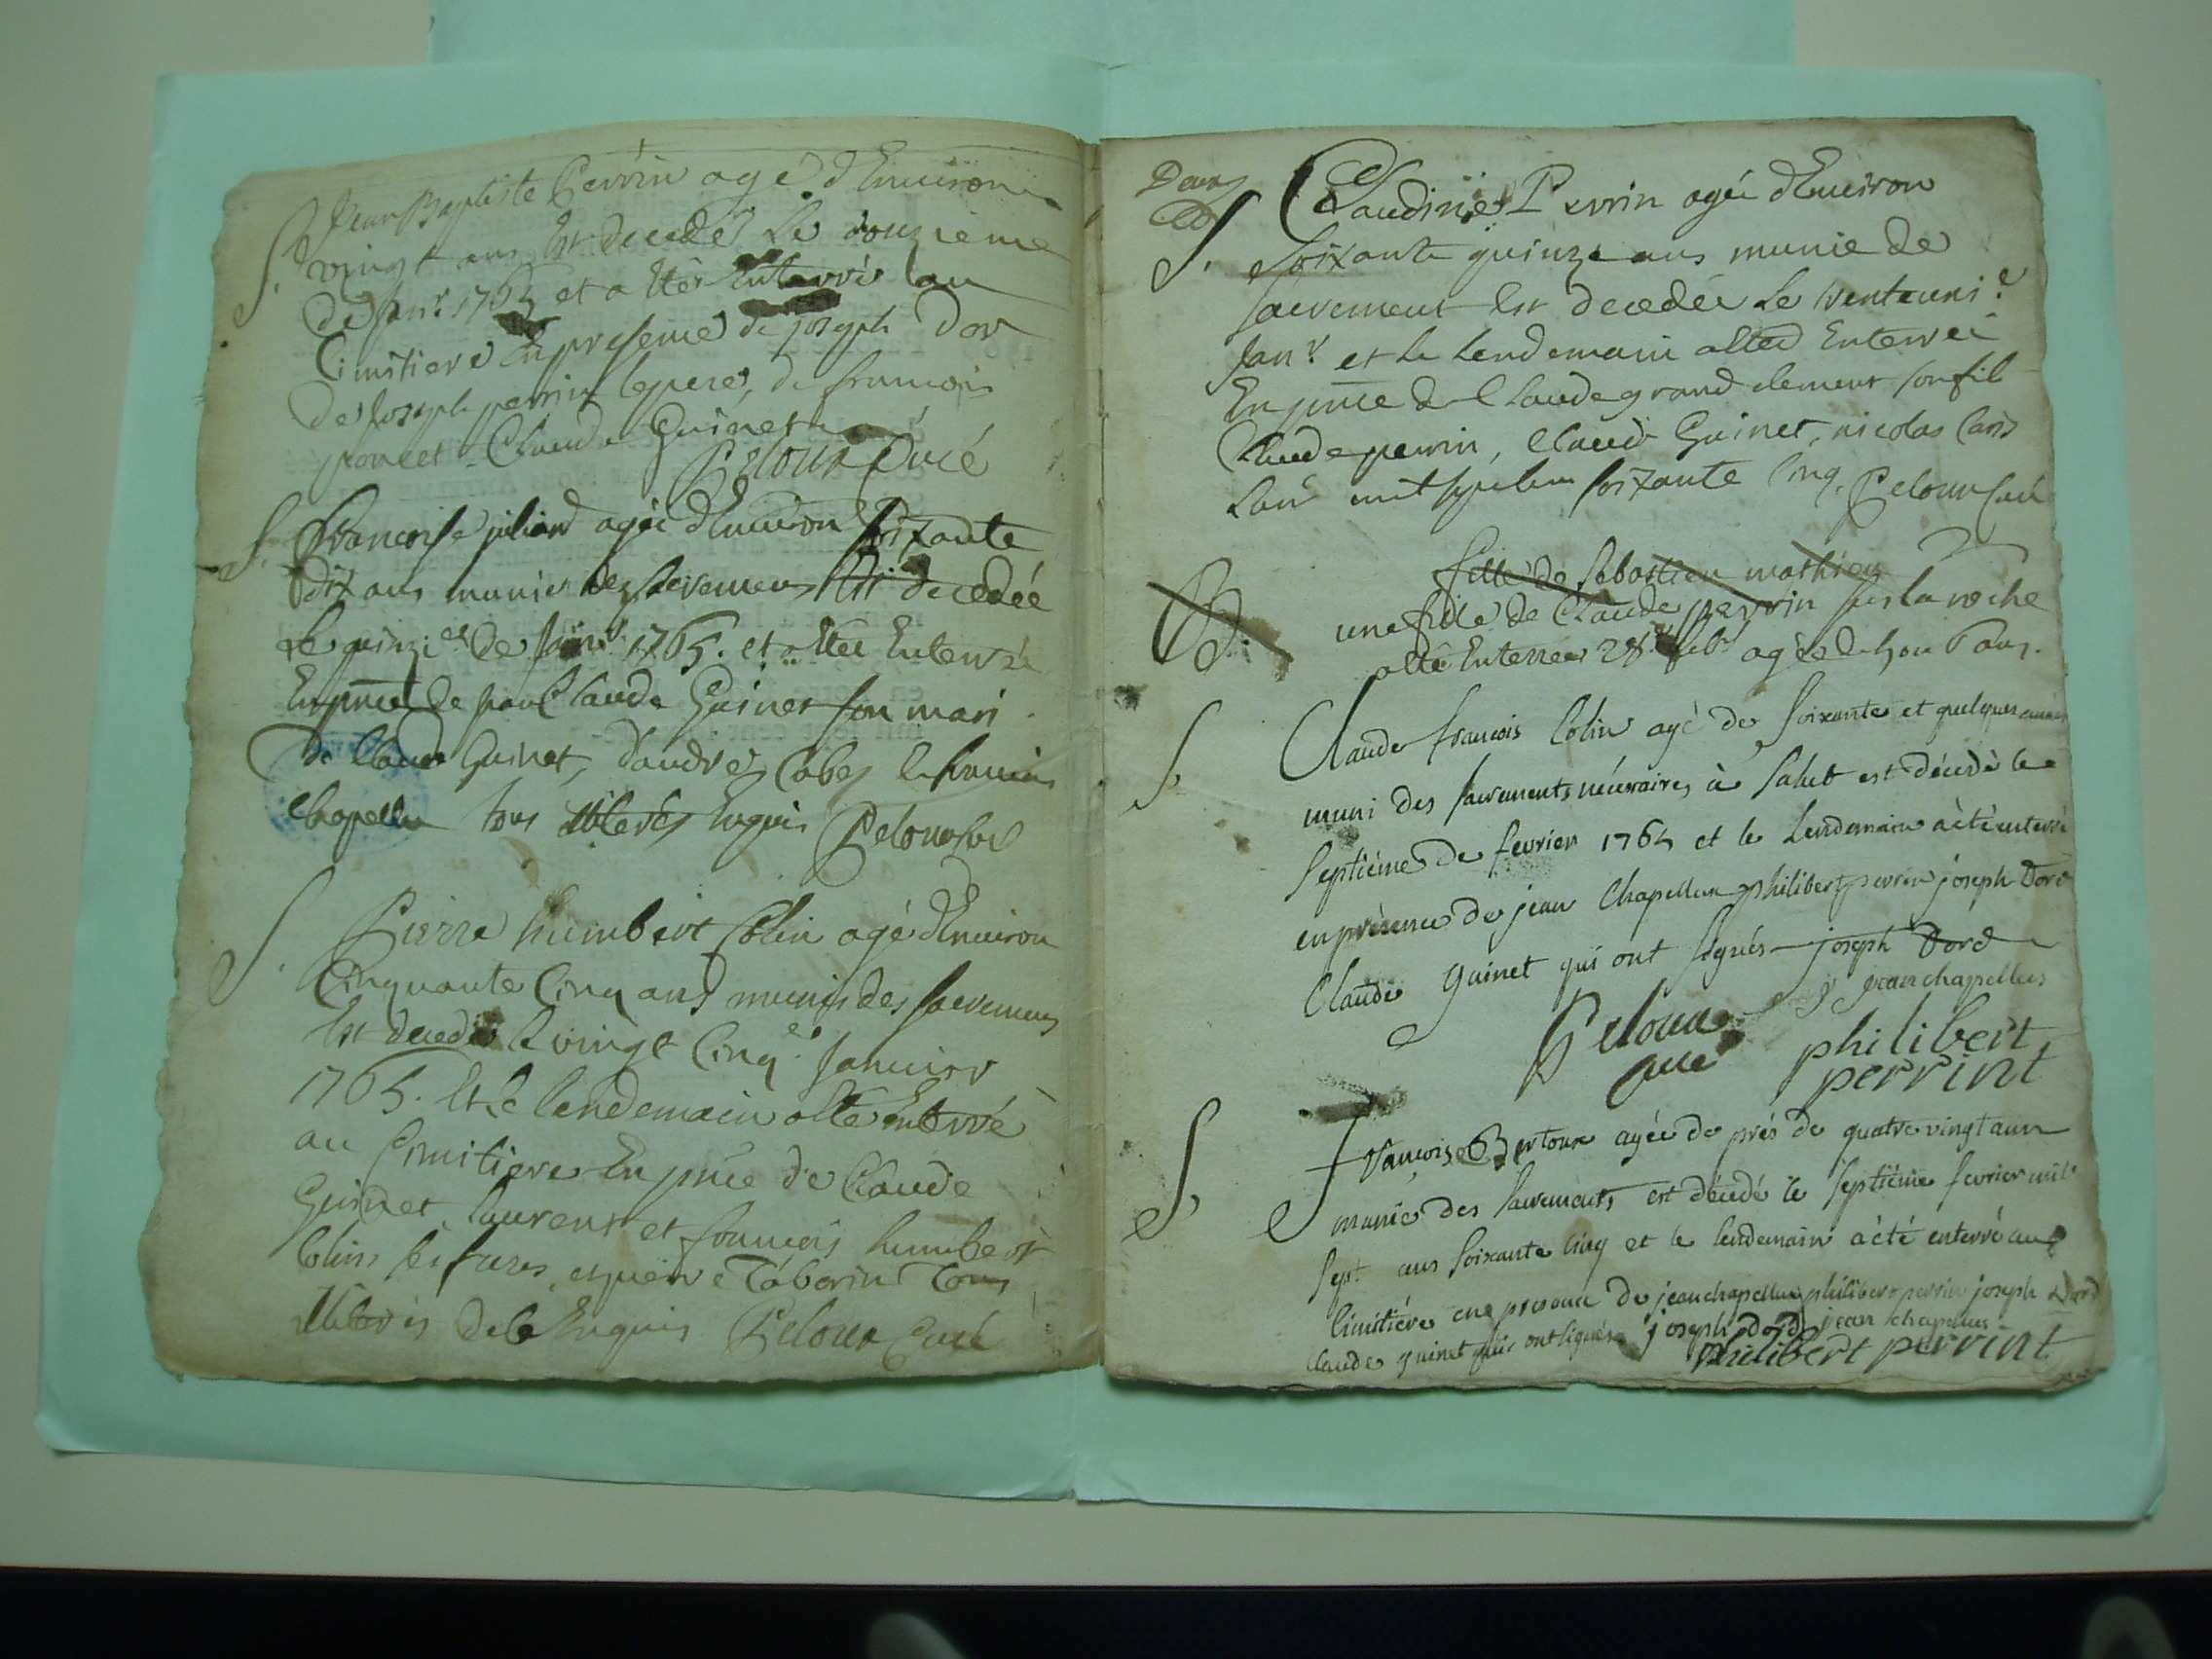 Jean Baptiste Perrin agé d'Environ
S. vingt ans Est decedé Le douzieme
De Janr 1765 et a Eté Enterré au
Cimitiere En presence de joseph Dor
De Joseph perrin le pere, de francois
poncet Claude Guinet
Peloux Curé
S. Francoise juliand agée d'Environ soixante
dix ans munie des sacremens Est decedée
Le quinzie de Janr 1765. et a ettee Enterrée
En pnce de jean Claude Guinet son mari
de Claude Guinet, d'andre Cabes
Chapellu tous illeteres Enquis Peloux Curé
S. Pierre humbert Colin agé d'Environ
Cinquante Cinq ans munis des sacremens
Est decedé le vingt Cinqe Janvier
1765. Et le lendemain a Eté Enterré
au Cimitiere En pnce de Claude
Guinet, laurent et francois humbert
Colin ses freres, et pierre Taborin tous
illiterés de ce Enquis Peloux Curé
S. Claudine Perrin agée d'Environ
soixante quinze ans munie de
sacrement Est decedée Le trenteunie
Janr et le Lendemain a Eté Enterrée
En pnce de Claude grand clement son fil
Claude perrin, Claude Guinet, nicolas
Lan mil sept cent soixante Cinq. Peloux Curé
fille de Sebastien mathieu
une fille de Claude perrin sus la roche
a été Enterree 28 febr agée de ans.
S. Claude francois Colin agé de soixante et quelques années
muni des sacrements nécessaires à salut est décédé le
septième de fevrier 1765 et le Lendemain a été enterré
en présence de jean Chapellux philibert perrin joseph Dord
Claude Guinet qui ont signés joseph Dord
jean chapellus
Peloux
curé
philibert
perrint
S. Françoise Bertoux agée de près de quatre vingt ans
munie des sacrements est décédé le septième fevrier mil
sept cens soixante cinq et le lendemain a été enterré au
Cimitière en presence de jean chapellux philibert perrin joseph Dord
Claude guinet qui ont signés joseph Dord jean chapellus
philibert perrint